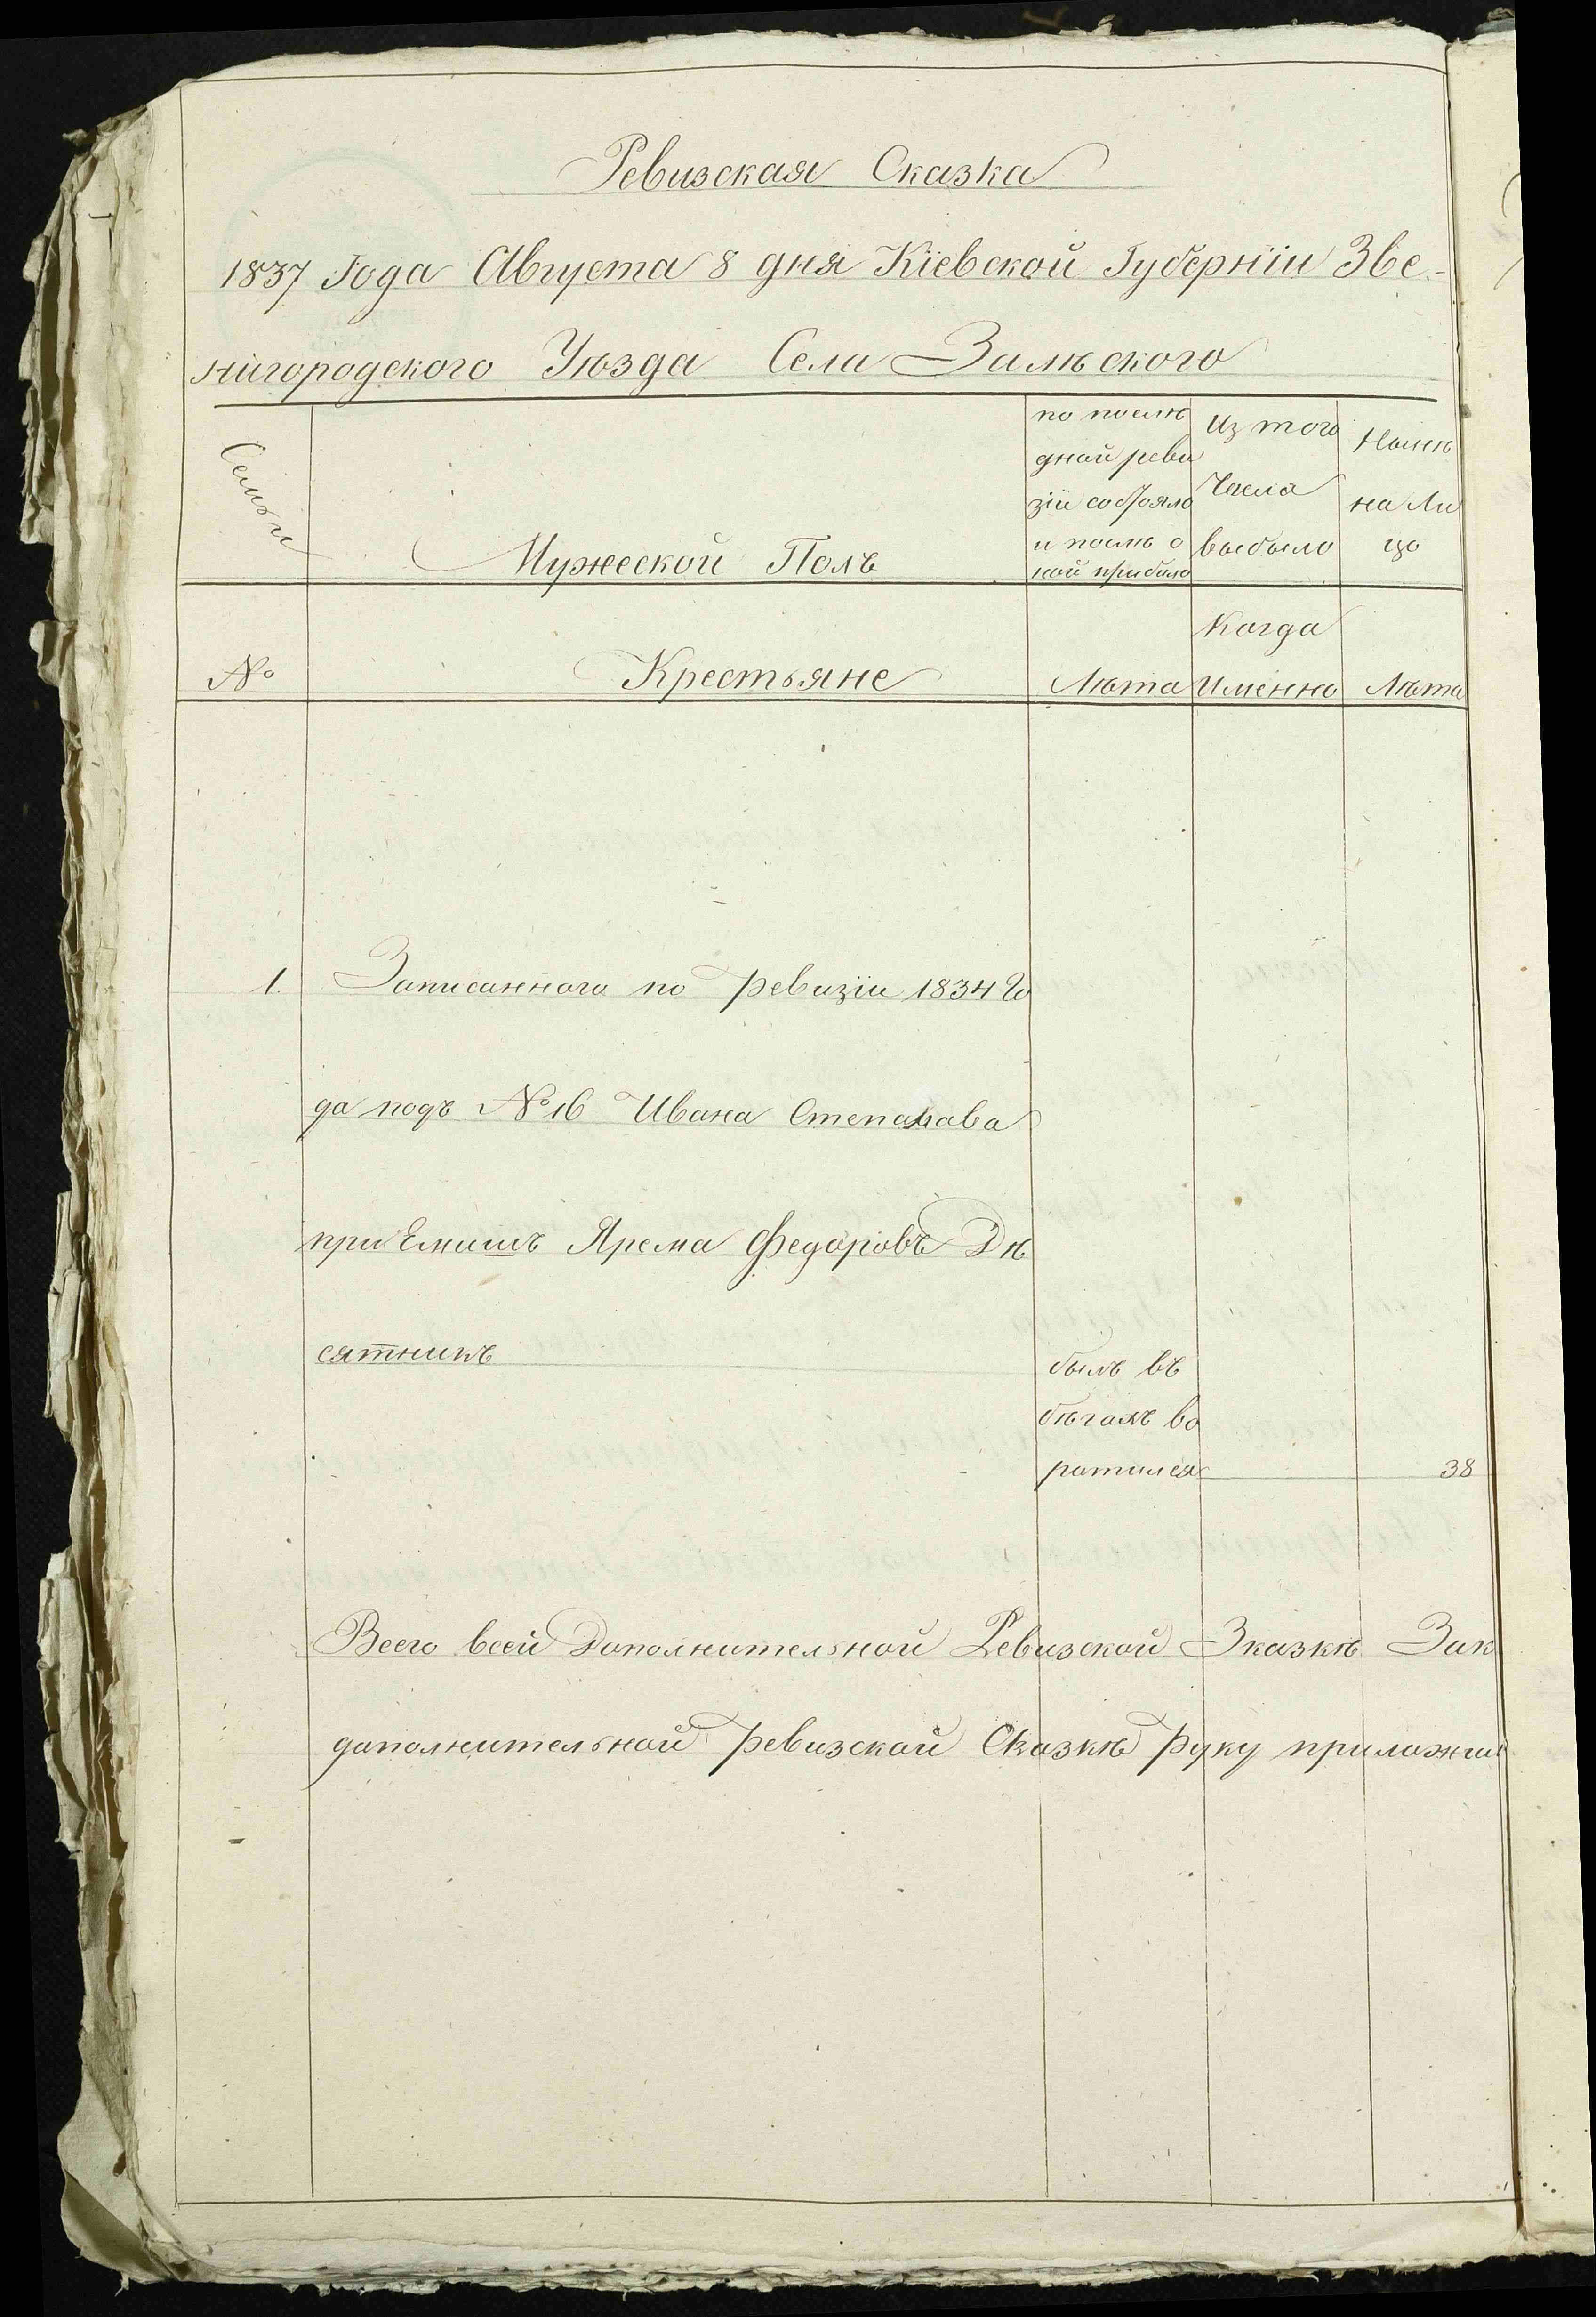 Ревизская Сказка
1837 Года Августа 8 дня Кіевской Губерніи Зве-
нигородского Уѣзда Села Залѣского
Семьи
Мужеской Полъ
по послѣ
дной реви
зіи состояло
и послѣ о
ной прибыло
Из того
Числа
выбыло
Нынѣ
на Ли
цо
№
Крестьяне
Лѣта
Когда
Именно
Лѣта
1. Записанного по ревизіи 1834 Го
да подъ № 16 Ивана Степанава
приЕмишъ Ярема Федоровъ Дѣ
сятникъ
былъ въ
бѣгахъ во
ратился 38
Всего всей Дополнительной Ревизской Зказкѣ Зак
дополнительной ревизской Сказкѣ руку приложил